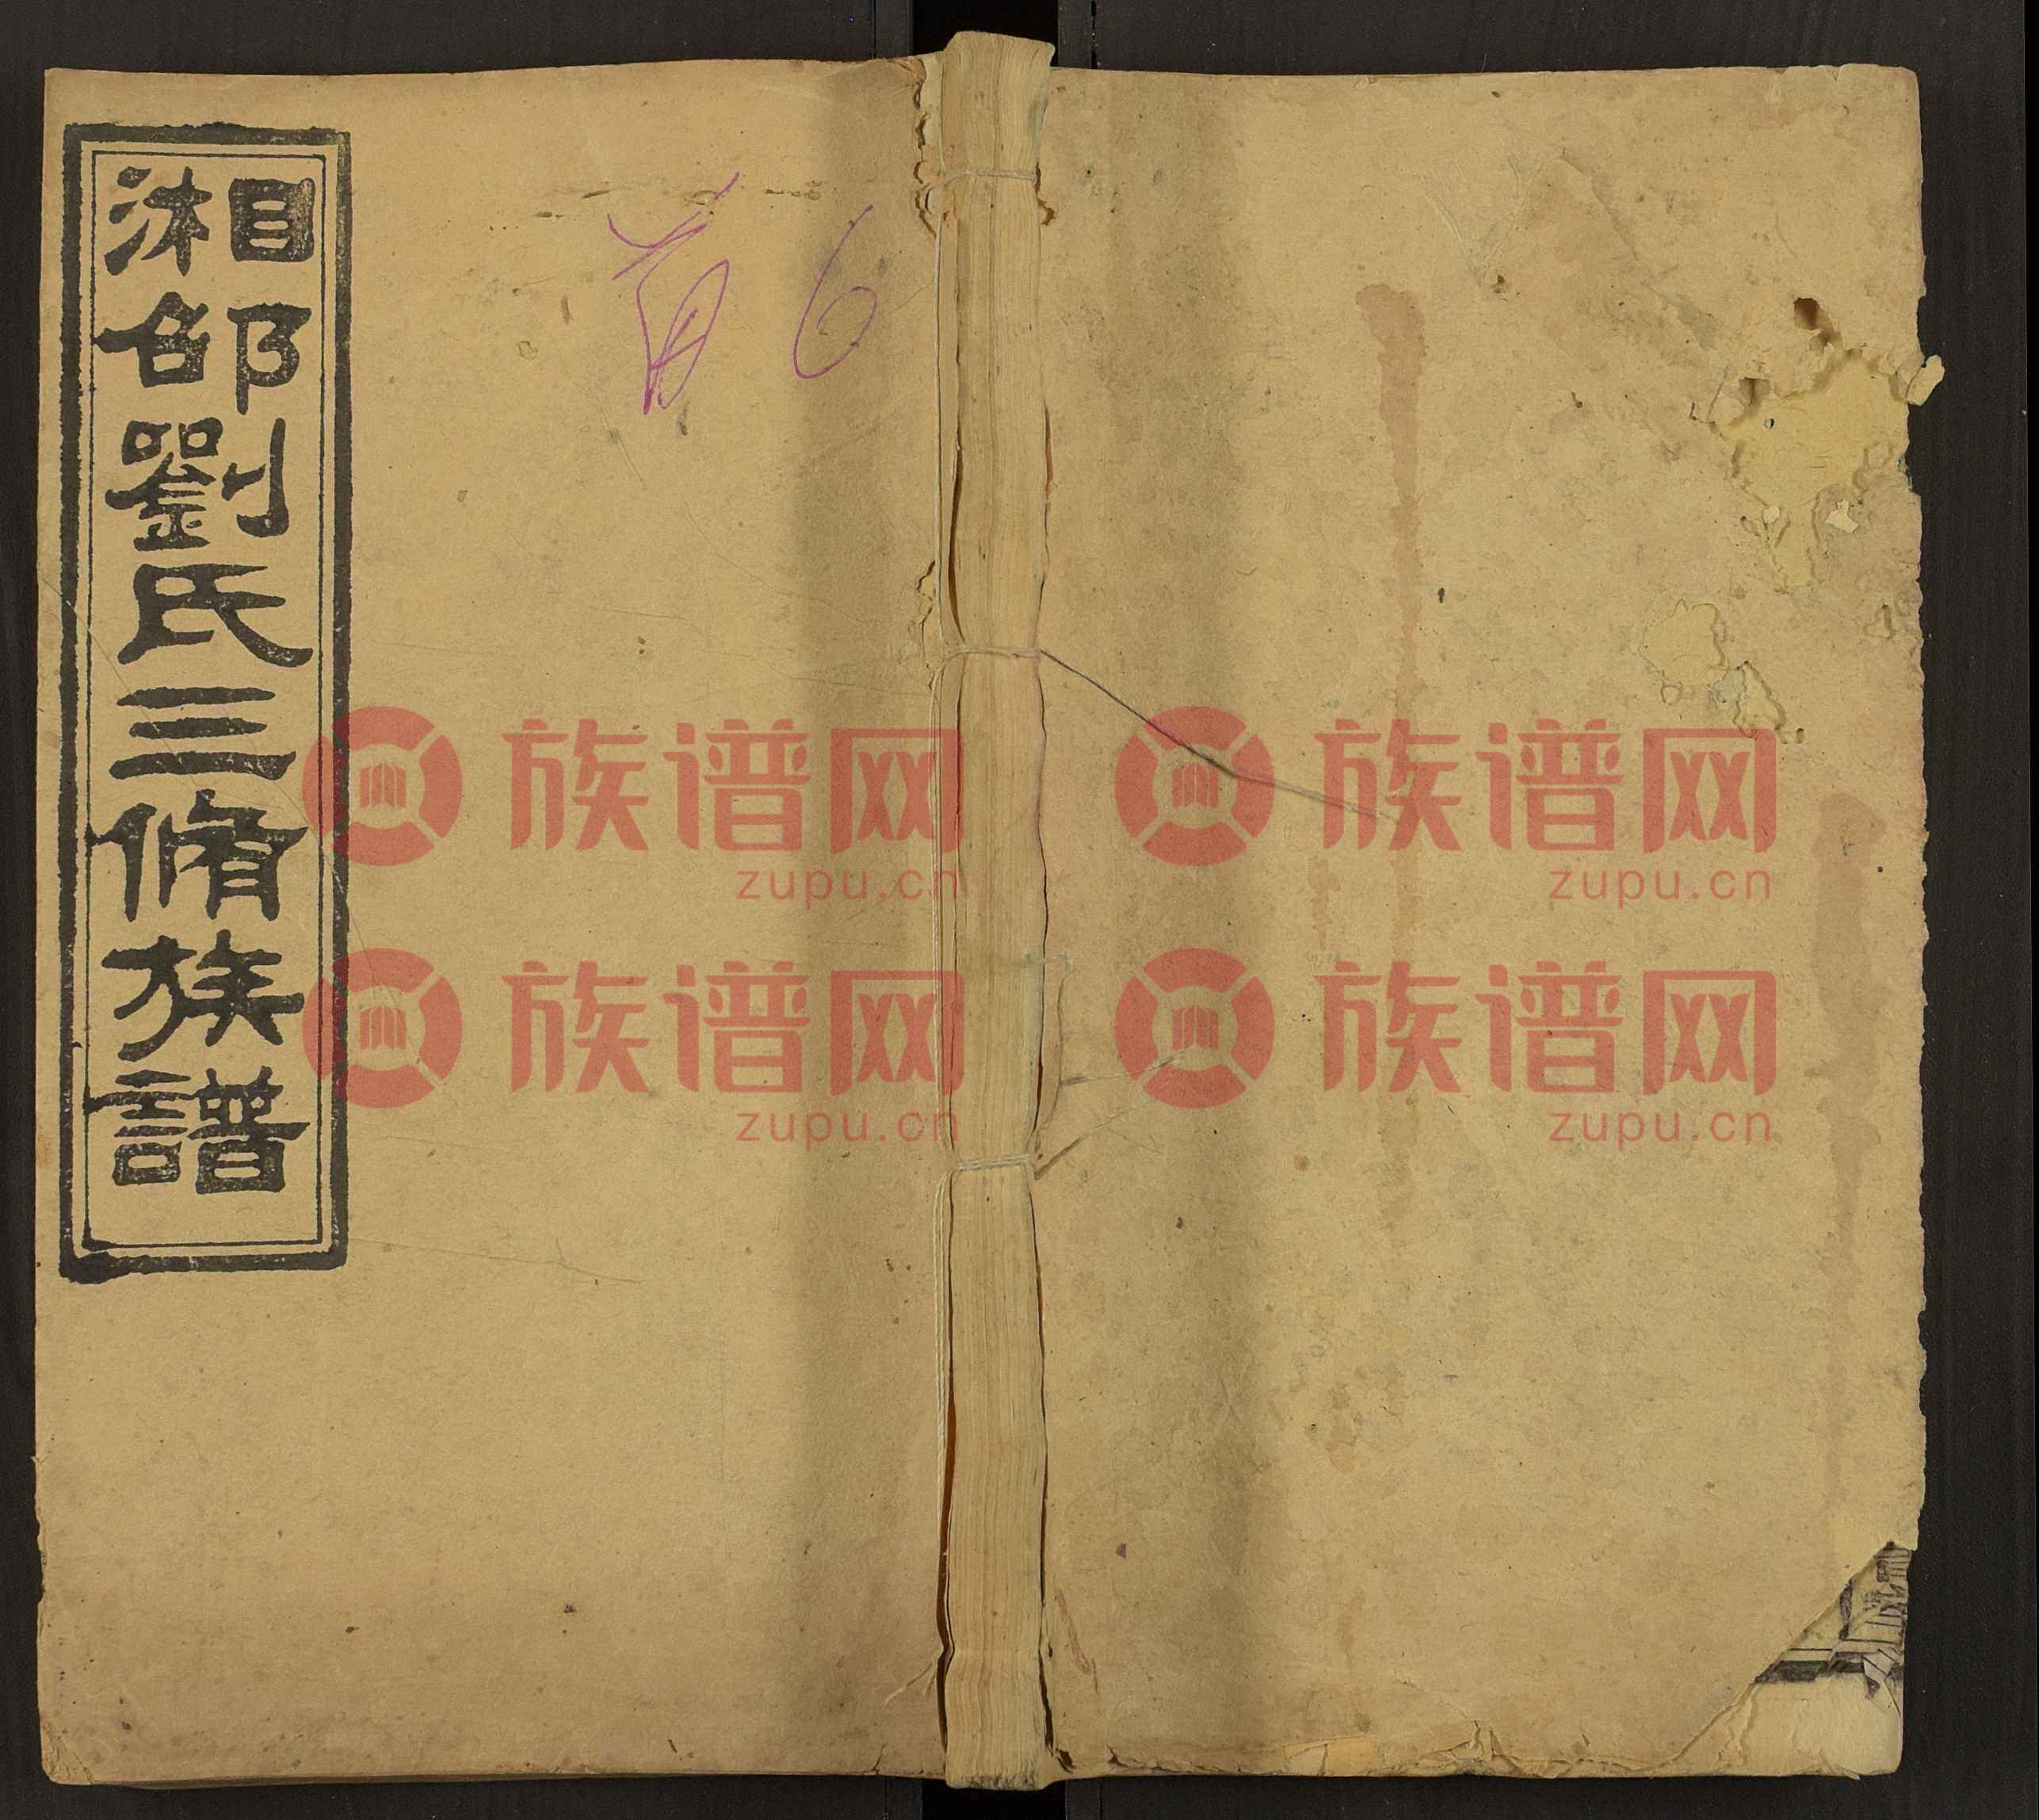 湘邵劉氏三脩族譜
首 6
族谱网
zupu.cn
族谱网
zupu.cn
族谱网
zupu.cn
族谱网
zupu.cn